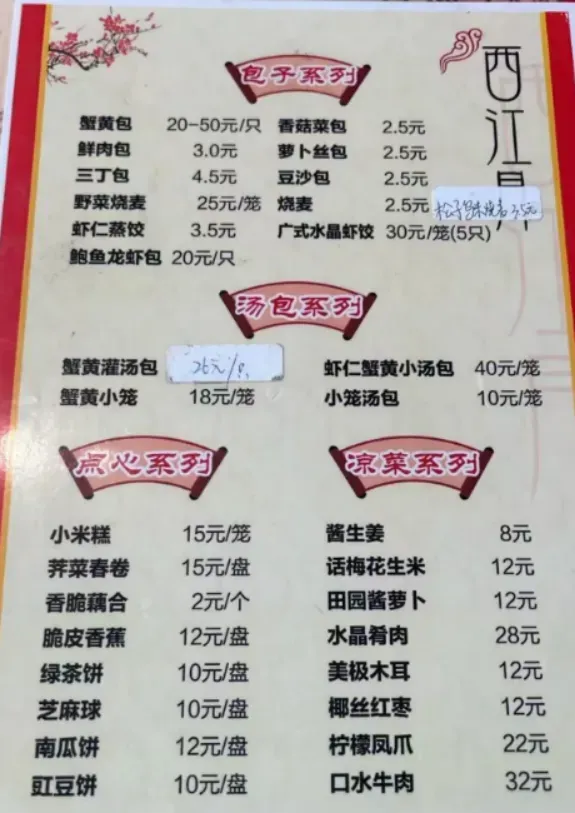 西江月
包子系列
蟹黄包 20-50元/只 香菇菜包 2.5元
鲜肉包 3.0元 萝卜丝包 2.5元
三丁包 4.5元 豆沙包 2.5元
野菜烧麦 25元/笼 烧麦 2.5元
虾仁蒸饺 3.5元 广式水晶虾饺 30元/笼(5只)
鲍鱼龙虾包 20元/只
汤包系列
蟹黄灌汤包 26元/只 虾仁蟹黄小汤包 40元/笼
蟹黄小笼 18元/笼 小笼汤包 10元/笼
点心系列
小米糕 15元/笼
荠菜春卷 15元/盘
香脆藕合 2元/个
脆皮香蕉 12元/盘
绿茶饼 10元/盘
芝麻球 10元/盘
南瓜饼 12元/盘
豇豆饼 10元/盘
凉菜系列
酱生姜 8元
话梅花生米 12元
田园酱萝卜 12元
水晶肴肉 28元
美极木耳 12元
椰丝红枣 12元
柠檬凤爪 22元
口水牛肉 32元